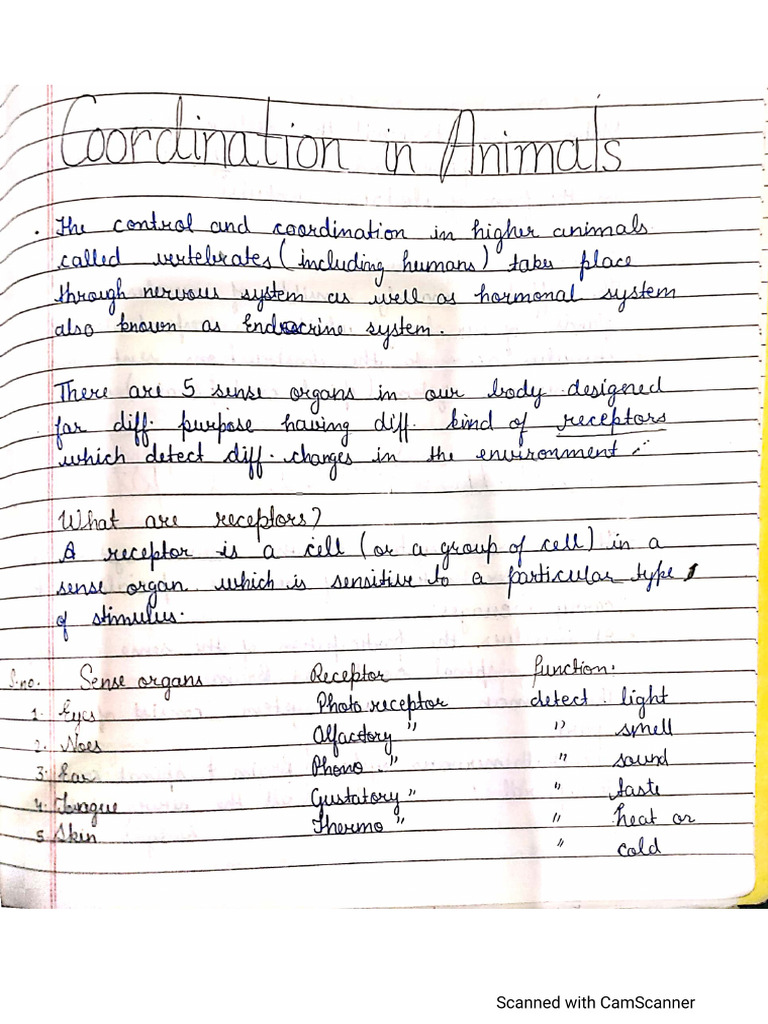 Coordination in Animals
. The control and coordination in higher animals
called vertebrates (including humans) takes place
through nervous system as well as hormonal system
also known as Endocrine system.
There are 5 sense organs in our body designed
for diff. purpose having diff. kind of receptors
which detect diff. changes in the environment :-
What are receptors?
A receptor is a cell (or a group of cell) in a
sense organ which is sensitive to a particular type
of stimulus.
S.no. Sense organs Receptor function:
1. Eyes Photo receptor detect light
2. Noes Olfactory " " smell
3. Ear Phono. " " sound
4. Tongue Gustatory " " taste
5. Skin Thermo " " heat or
" cold
Scanned with CamScanner